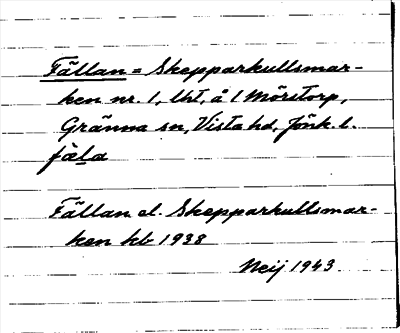 Fällan = Skepparkullsmar-
ken nr. 1, lht, å 1 Mörstorp,
Gränna sn, Vista hd, Jönk. l.
fäla
Fällan el. Skepparkullsmar-
ken kb 1938
Neij 1943